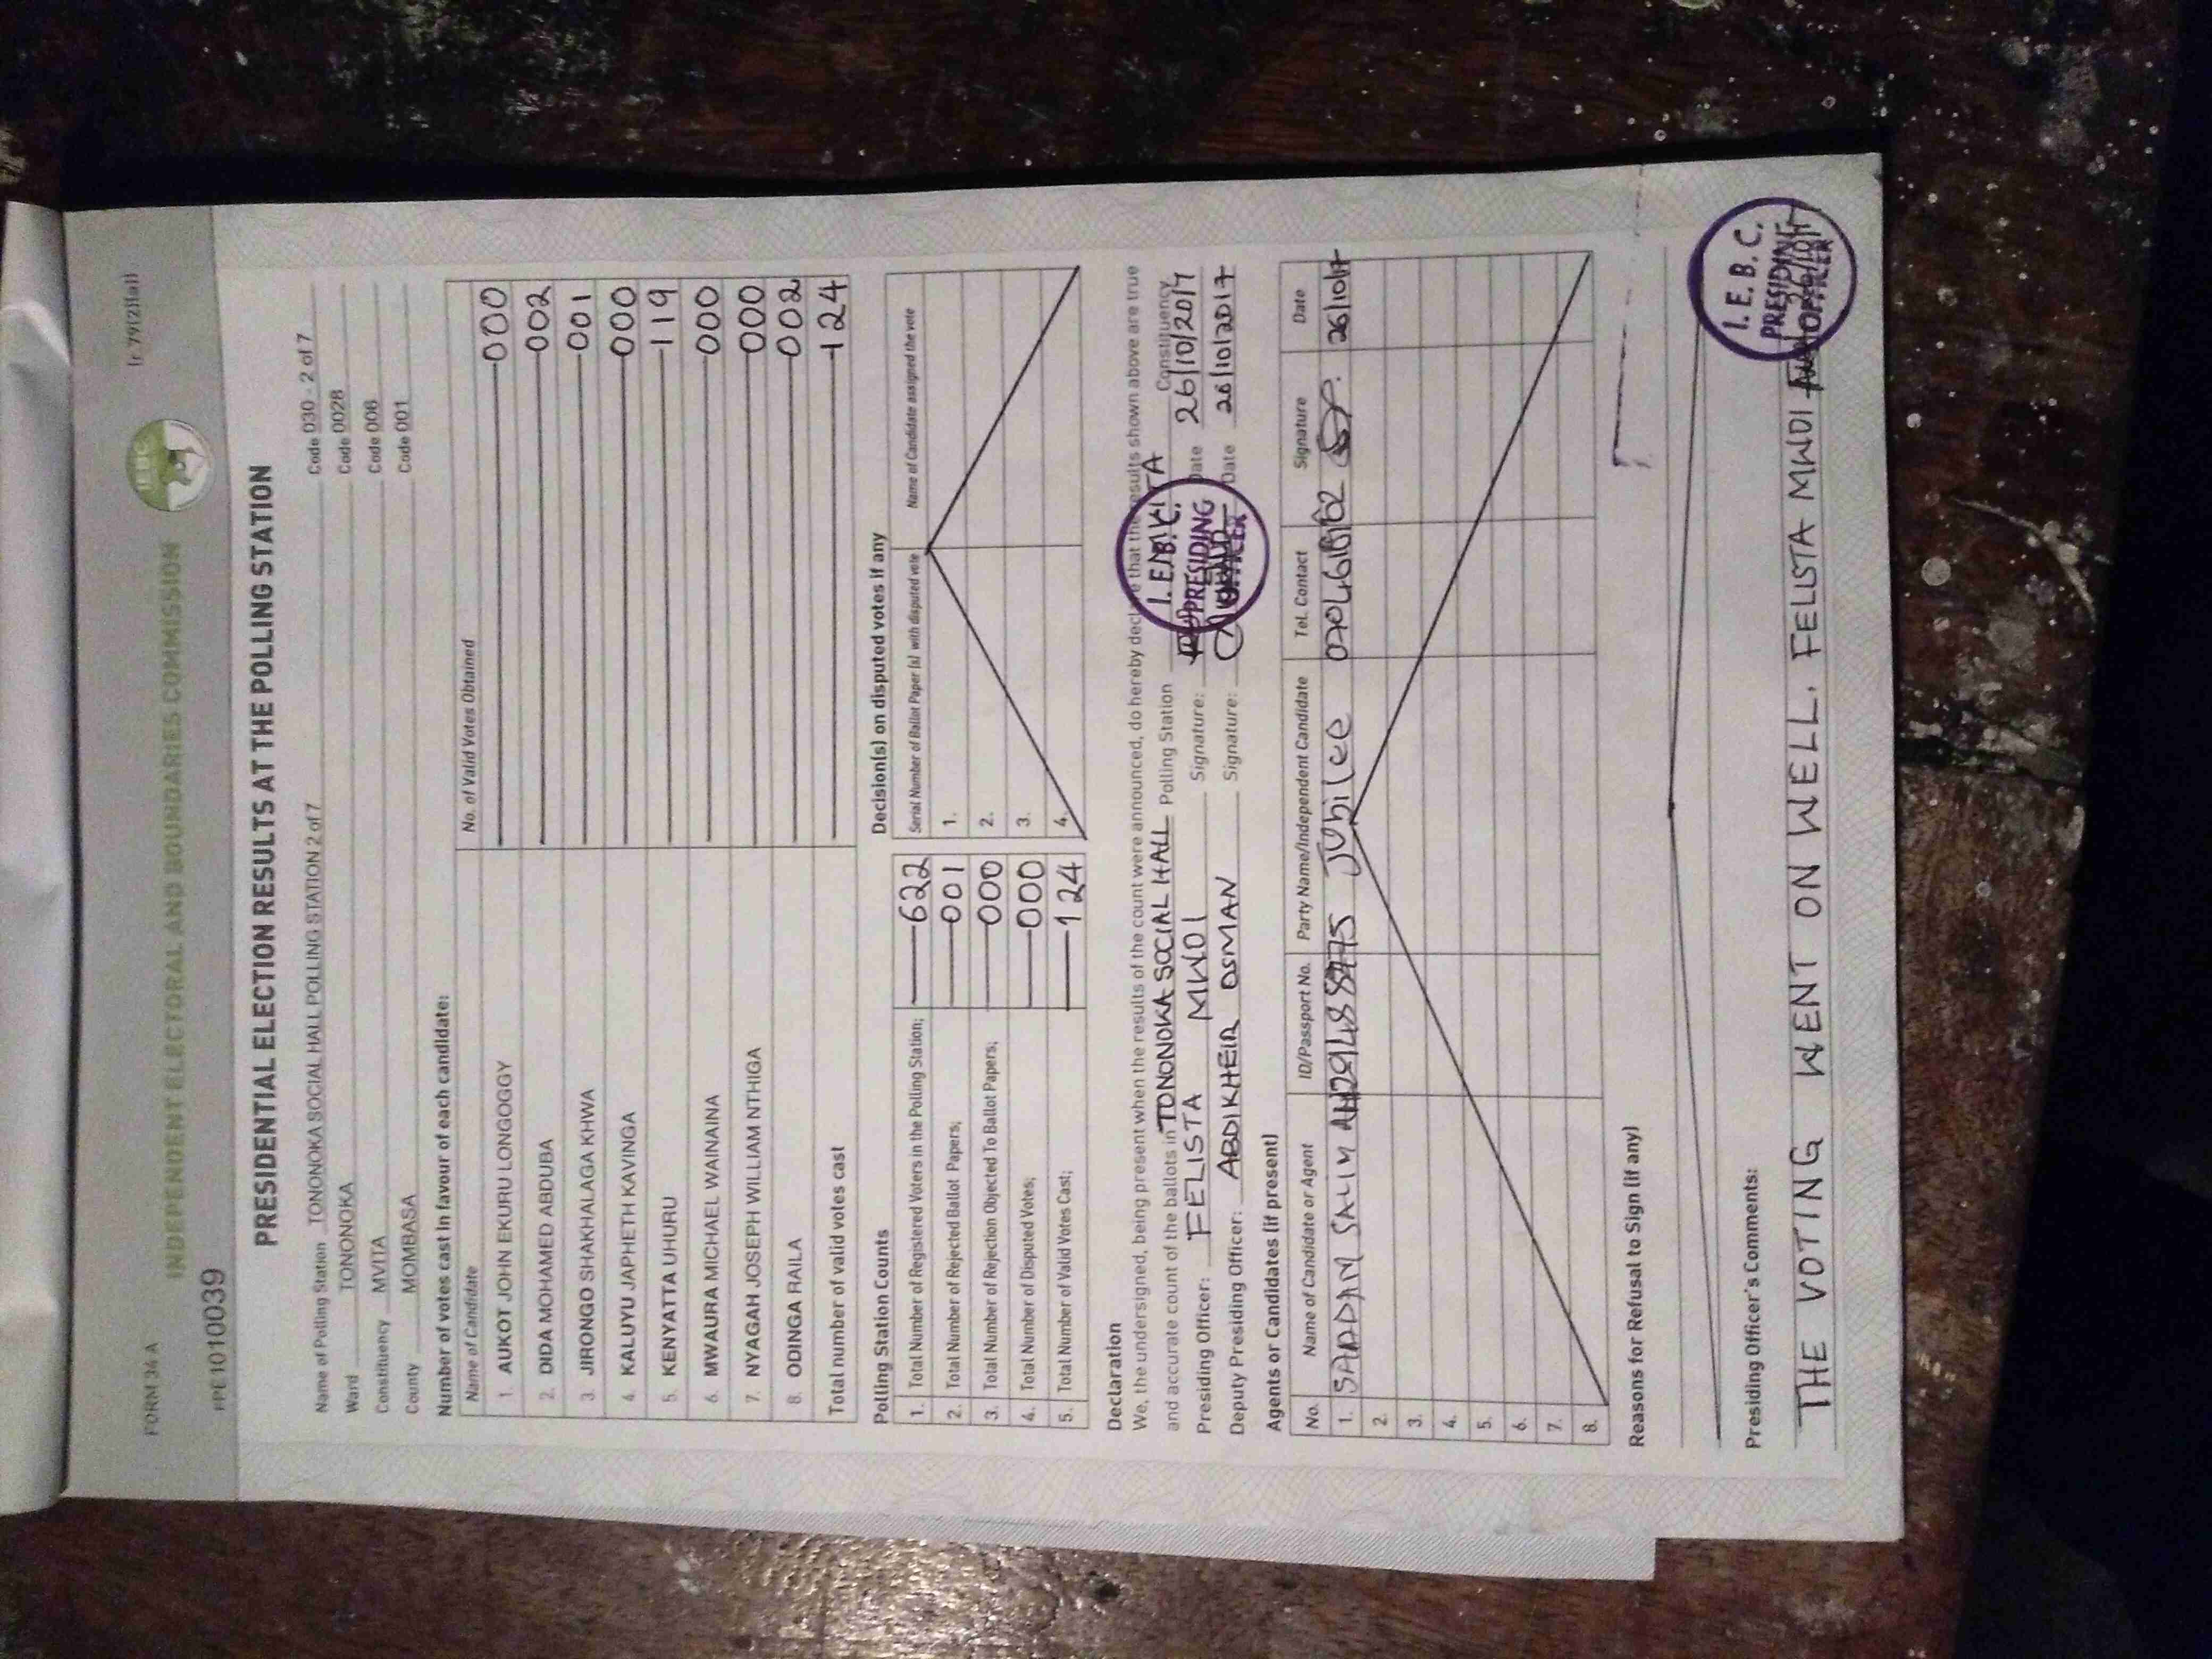 FORM 34 A
(r. 79(2)(a))
IEBC
INDEPENDENT ELECTORAL AND BOUNDARIES COMMISSION
PE 1010039
PRESIDENTIAL ELECTION RESULTS AT THE POLLING STATION
Name of Polling Station TONONOKA SOCIAL HALL POLLING STATION 2 of 7 Code 030 - 2 of 7
Ward TONONOKA Code 0028
Constituency MVITA Code 006
County MOMBASA Code 001
Number of votes cast in favour of each candidate:
Name of Candidate No. of Valid Votes Obtained
1. AUKOT JOHN EKURU LONGOGGY 000
2. DIDA MOHAMED ABDUBA 002
3. JIRONGO SHAKHALAGA KHWA 001
4. KALUYU JAPHETH KAVINGA 000
5. KENYATTA UHURU 119
6. MWAURA MICHAEL WAINAINA 000
7. NYAGAH JOSEPH WILLIAM NTHIGA 000
8. ODINGA RAILA 002
Total number of valid votes cast 124
Polling Station Counts
1. Total Number of Registered Voters in the Polling Station; 622
2. Total Number of Rejected Ballot Papers; 001
3. Total Number of Rejection Objected To Ballot Papers; 000
4. Total Number of Disputed Votes; 000
5. Total Number of Valid Votes Cast; 124
Decision(s) on disputed votes if any
Serial Number of Ballot Paper (s) with disputed vote Name of Candidate assigned the vote
1.
2.
3.
4.
Declaration
We, the undersigned, being present when the results of the count were announced, do hereby declare that the results shown above are true
and accurate count of the ballots in TONONOKA SOCIAL HALL Polling Station MVITA Constituency
Presiding Officer: FELISTA MWDI Signature: Date 26/10/2017
Deputy Presiding Officer: ABDIKHEIR OSMAN Signature: Date 26/10/2017
I.E.B.C.
PRESIDING
OFFICER
Agents or Candidates (if present)
No. Name of Candidate or Agent ID/Passport No. Party Name/Independent Candidate Tel. Contact Signature Date
1. SAADAM SALIM Jubilee 26/10/17
2.
3.
4.
5.
6.
7.
8.
Reasons for Refusal to Sign (if any)
Presiding Officer's Comments:
THE VOTING WENT ON WELL. FELISTA MWDI
I.E.B.C.
PRESIDING
OFFICER